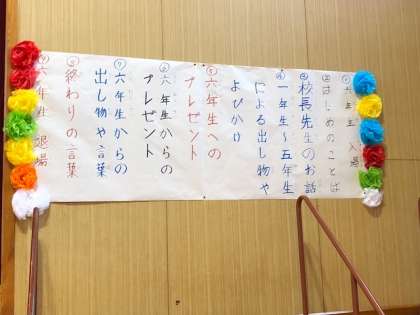 ①六年生 入場
②はじめのことば
③校長先生のお話
④一年生〜五年生
による出し物や
よびかけ
⑤六年生への
プレゼント
⑥六年生からの
プレゼント
⑦六年生からの
出し物や言葉
⑧終わりの言葉
⑨六年生 退場